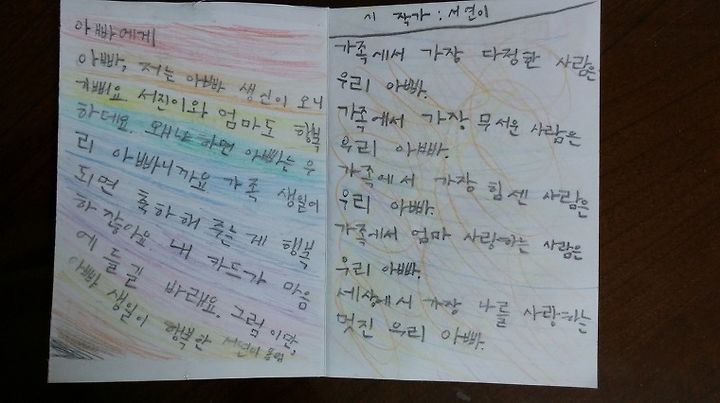 아빠에게
아빠, 저는 아빠 생신이 오니
기뻐요. 서진이와 엄마도 행복
하데요. 왜냐 하면 아빠는 우
리 아빠니까요 가족 생일이
되면 축하해 주는 게 행복
하잖아요. 내 카드가 마음
에 들길 바래요. 그럼 이만,
아빠 생일이 행복한 서연이 올림
시 작가 : 서연이
가족에서 가장 다정한 사람은
우리 아빠.
가족에서 가장 무서운 사람은
우리 아빠.
가족에서 가장 힘센 사람은
우리 아빠.
가족에서 엄마 사랑하는 사람은
우리 아빠.
세상에서 가장 나를 사랑하는
멋진 우리 아빠.